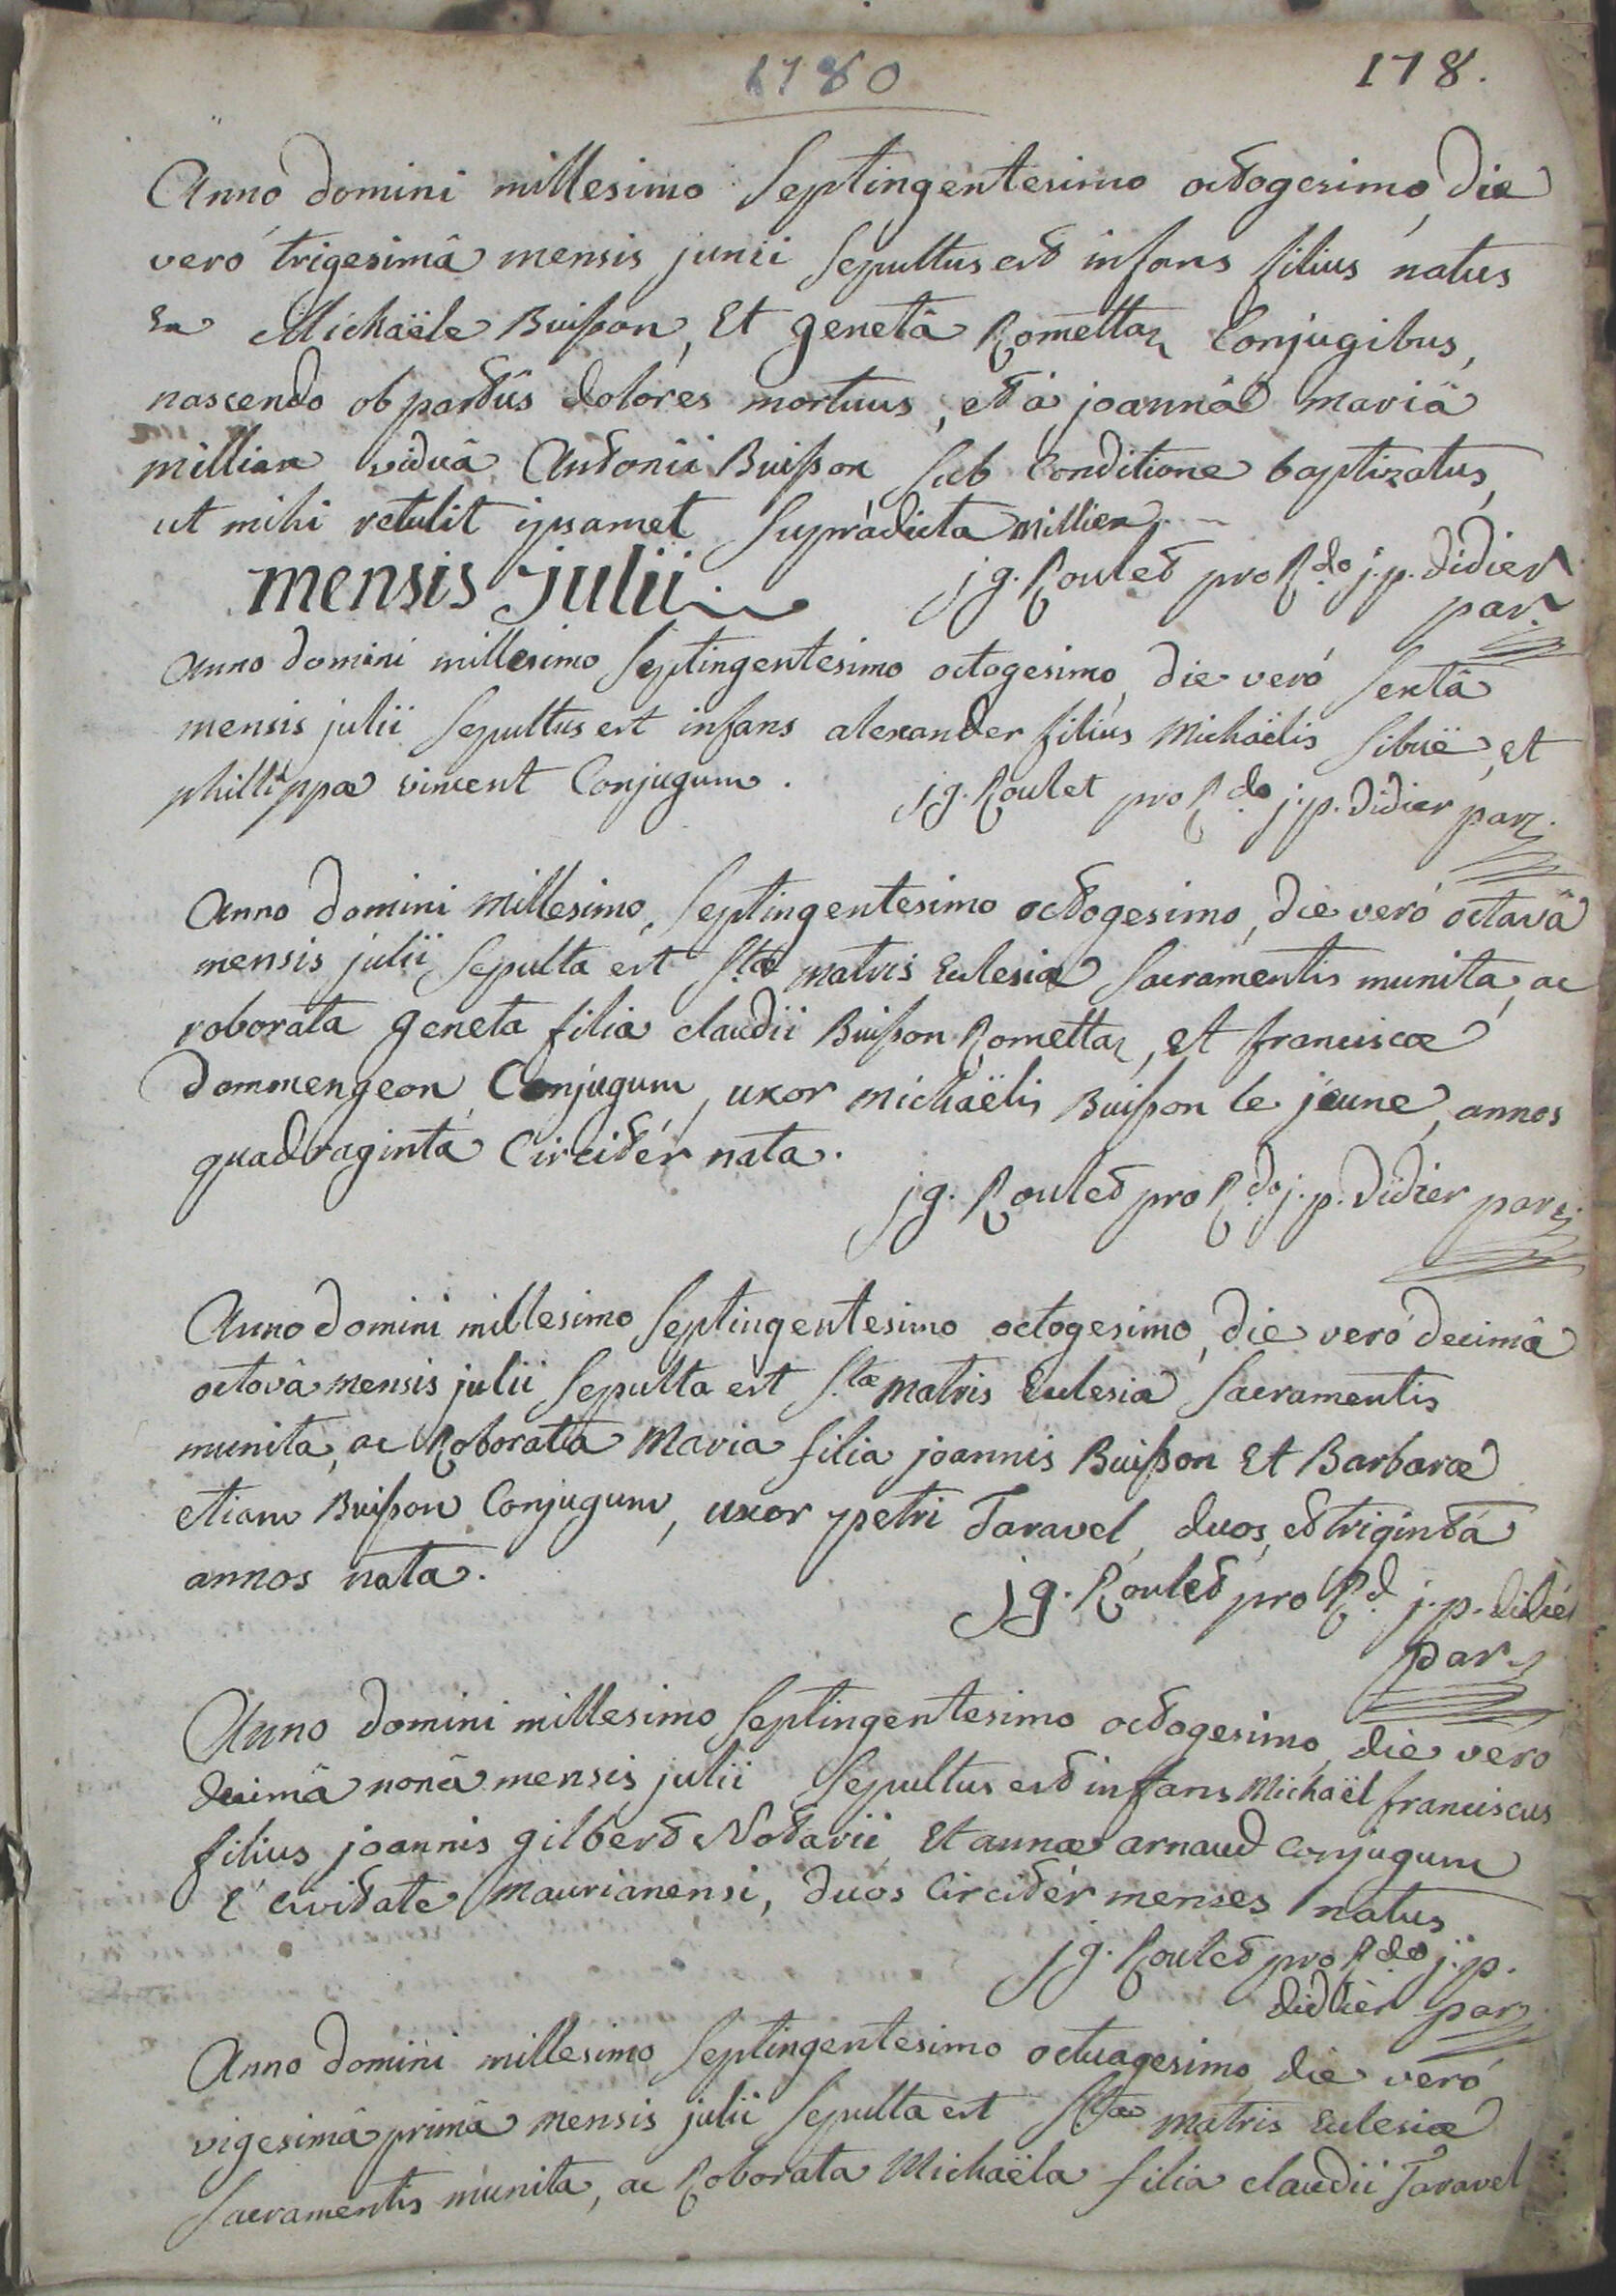 1780
178.
Anno domini millesimo Septingentesimo octogesimo, die
veró trigesimâ mensis junii Sepultus est infans filius natus
Ex Michaële Buisson, Et genetâ Romettaz Conjugibus,
nascendo ob partûs dolores mortuus, et à joannâ mariâ
millien viduâ Antonii Buisson sub Conditione baptizatus,
ut mihi retulit ipsamet supràdicta millien.
jg. Roulet pro R.do j. p. didier
par.
mensis julii.
Anno domini millesimo Septingentesimo octogesimo, die veró Sextâ
mensis julii Sepultus est infans alexander filius Michaëlis Sibuë, et
phillippæ vincent Conjugum.
jg. Roulet pro R.do j. p. didier par.
Anno domini Millesimo, Septingentesimo octogesimo, die veró octavâ
mensis julii Sepulta est S.tæ matris Eclesiæ Sacramentis munita, ac
roborata geneta filia claudii Buisson Romettaz, et franciscæ
dommengeon Conjugum, uxor michaëlis Buisson le jeune, annos
quadraginta Circitér nata.
jg. Roulet pro R.do j. p. Didier par.
Anno domini millesimo Septingentesimo octogesimo, die veró decimâ
octovâ mensis julii Sepulta est S.tæ Matris Eclesiæ Sacramentis
munita, ac Roborata Maria filia joannis Buisson Et Barbaræ
etiam Buisson Conjugum, uxor petri Taravel, duos, et triginta
annos nata.
jg. Roulet pro R.d j. p. didiér
par.
Anno domini millesimo Septingentesimo octogesimo, die veró
decimâ nonâ mensis julii Sepultus est infans Michaël franciscus
filius joannis gilbert Notarii, Et annæ arnaud Conjugum
é Civitate Maurianensi, duos Circitér menses natus
jg. Roulet pro R.do j. p.
didier par.
Anno domini millesimo Septingentesimo octuagesimo, die veró
vigesimâ primâ mensis julii Sepulta est S.tæ matris Eclesiæ
Sacramentis munita, ac Roborata Michaëla filia claudii Taravel